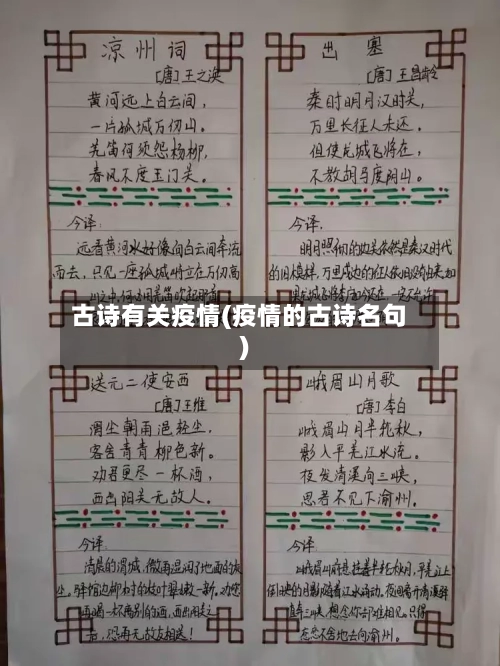 凉州词
[唐]王之涣
黄河远上白云间，
一片孤城万仞山。
羌笛何须怨杨柳，
春风不度玉门关。
今译：
远看黄河水好像向白云间奔流
而去，只见一座孤城屹立在万仞高
出塞
[唐]王昌龄
秦时明月汉时关，
万里长征人未还。
但使龙城飞将在，
不教胡马度阴山。
今译：
明月照彻的边关依然是秦汉时代
的旧模样，万里戍边的征人依旧没有
古诗有关疫情(疫情的古诗名句
)
送元二使安西
[唐]王维
渭城朝雨浥轻尘，
客舍青青柳色新。
劝君更尽一杯酒，
西出阳关无故人。
今译：
清晨的渭城，微雨湿润了地面的灰
尘，驿馆边柳树的枝叶翠嫩一新。劝您
再喝一杯离别的酒，西出阳关之
后，恐再无故友相送！
峨眉山月歌
[唐]李白
峨眉山月半轮秋，
影入平羌江水流。
夜发清溪向三峡，
思君不见下渝州。
今译：
峨眉山前悬挂着半轮秋月，平羌江上
倒映的月影随着江水流动。夜间离开清溪驿
直奔三峡，想念你却难相见，只得
在恋恋不舍地去向渝州。